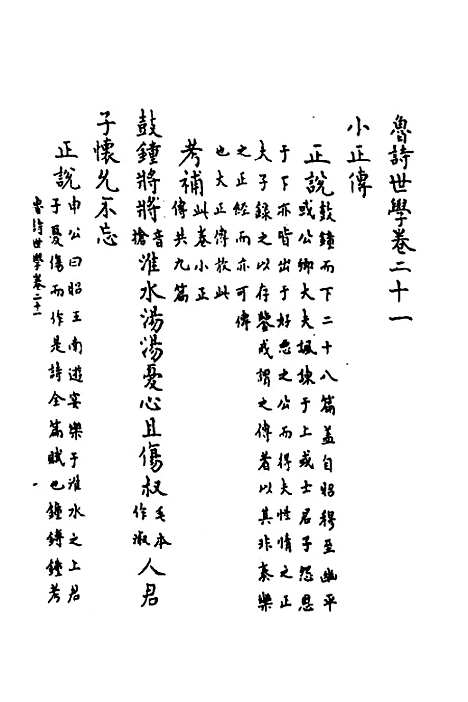 魯詩世學卷二十一
小正傳
正說鼓鐘而下二十八篇蓋自昭穆至幽平
或公卿大夫諷諫于上或士君子怨思
于下亦皆出于好惡之公而得夫性情之正
夫子錄之以存鑒戒謂之傳者以其非奏樂
之正經而亦可傳
也大正傳放此
考補此卷小正
傳共九篇
鼓鍾將將音
搶淮水湯湯憂心且傷叔毛本
作淑人君
子懷允不忘
正說申公曰昭王南遊宴樂于淮水之上君
子憂傷而作是詩全篇賦也鍾鎛鍾考
魯詩世學卷二十一